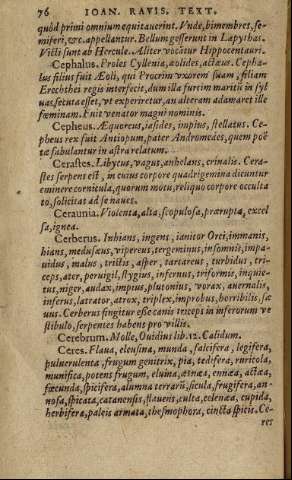 76 IOAN. RAVIS. TEXT.
quòd primi omnium equitauerint. Vnde, bimembres, se-
miferi, &c. appellantur. Bellum gesserunt in Lapythas.
Victi sunt ab Hercule. Aliter vocātur Hippocentauri.
Cephalus. Proles Cyllenia, æolides, actæus. Cepha-
lus filius fuit Æoli, qui Procrim vxorem suam, filiam
Erechthei regis interfecit, dum illa furtim maritū in syl
uas, secuta esset, vt experiretur, an alteram adamaret ille
fœminam. Fuit venator magni nominis.
Cepheus. Æquoreus, iasides, impius, stellatus. Ce-
pheus rex fuit Antiopum, pater Andromedes, quem poë
tæ fabulantur in astra relatum.
Cerastes. Libycus, vagus, anhelans, crinalis. Cera-
stes serpens est, in cuius corpore quadrigemina dicuntur
eminere cornicula, quorum motu, reliquo corpore occulta
to, solicitat ad se naues.
Ceraunia. Violenta, alta, scopulosa, prærupta, excel
sa, ignea.
Cerberus. Inhians, ingens, ianitor Orci, immanis,
hians, medusæus, vipereus, tergeminus, insomnis, impa-
uidus, malus, trictis, asper, tartareus, turbidus, tri-
ceps, ater, peruigil, stygius, infernus, triformis, inquie-
tus, niger, audax, impius, plutonius, vorax, auernalis,
inferus, latrator, atrox, triplex, improbus, horribilis, sæ
uus. Cerberus fingitur esse canis triceps in inferorum ve
stibulo, serpentes habens pro villis.
Cerebrum. Molle, Ouidius lib. 12. Calidum.
Ceres. Flaua, eleusina, munda, falcifera, legifera,
puluerulenta, frugum genitrix, pia, tedifera, ruricola,
munifica, potens frugum, eluina, ætnæa, ennæa, actæa,
fœcunda, spicifera, alumna terrarū, sicula, frugifera, an-
nosa, spicata, catanensis, flauens, culta, celenæa, cupida,
herbifera, paleis armata, thesmophora, cincta spicis. Ce-
res